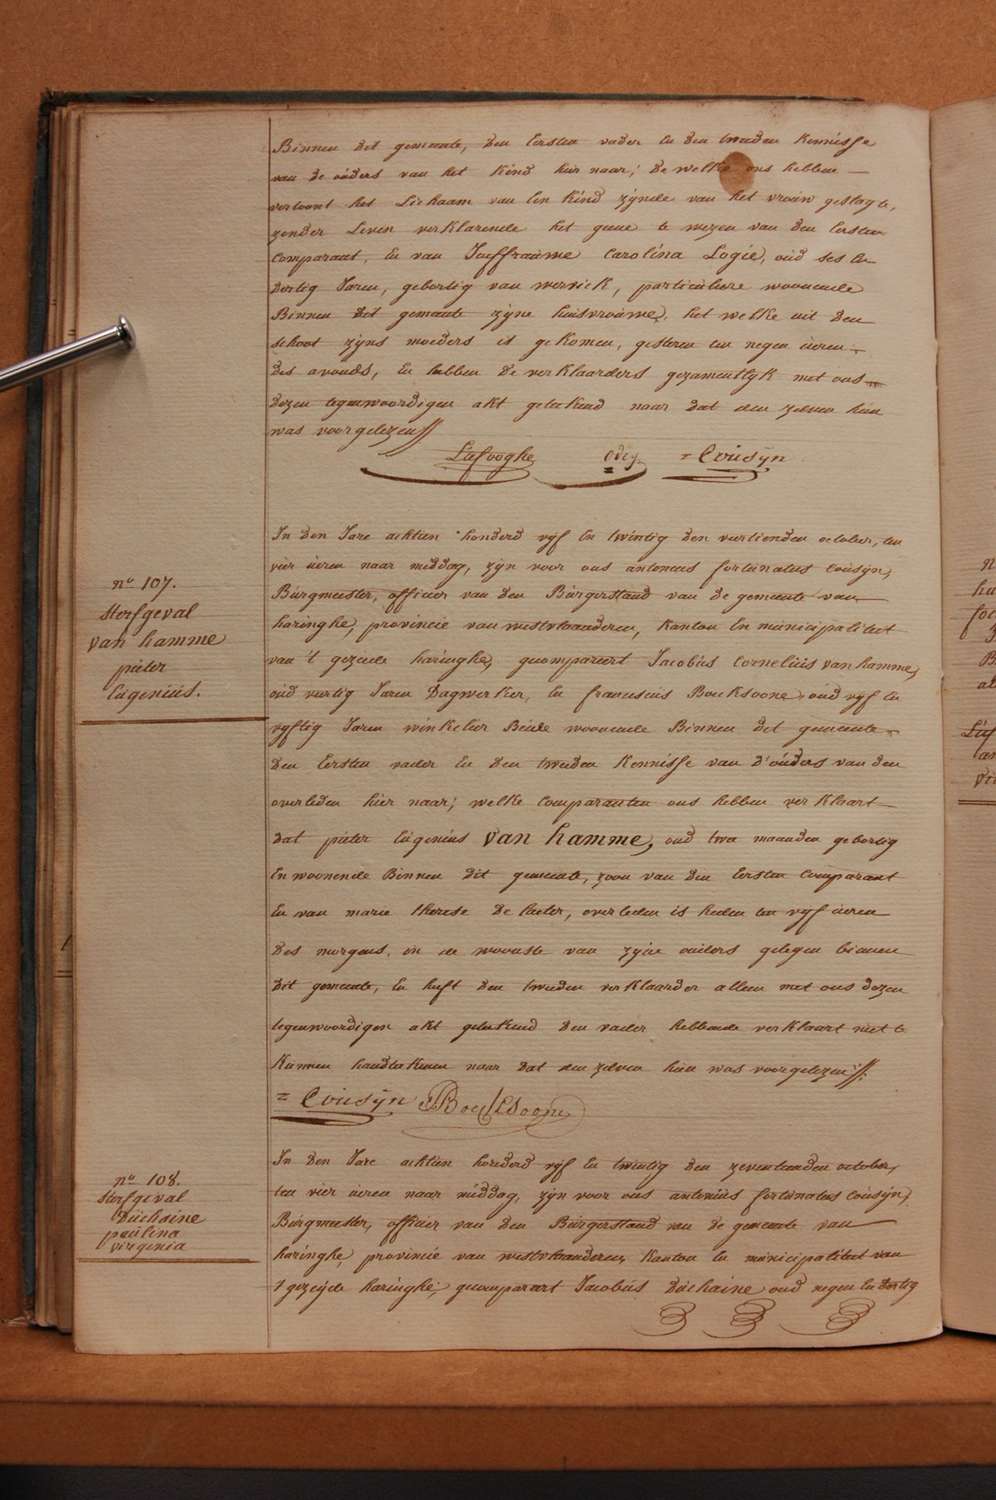 Binnen det gemeente, den Eersten vader En den tweeden Kennisse
van de oúders van het Kind hier naar; de welke ons hebben
vertoont het Lichaam van Een Kind zijnde van het vrouw geslagte,
zonder Leven verklarende het gene te wezen van den Eersten
Comparant, En van Joúffraúwe Carolina Logie, oud ses En
dertig Jaren, gebortig van wervick, particuliere woonende
Binnen dit gemeente zijne huisvroúwe, het welke uit den
schoot zijns moeders is gekomen, gisteren ten negen úeren
des avonds, En hebben de verklaarders gezamentlijk met ons
dezen tegenwoordigen akt geteekend naar dat den zelven hun
was voorgelezen//
Liefooghe Odej = Coúsijn
In den Jare achtien honderd vijf En twintig den viertienden october, ten
vier úeren naar middag, zijn voor ons antoneus fortunatus coúsijn,
Búrgmeester, officier van den Búrgerstand van de gemeente van
haringhe, provincie van westvlaanderen, Kanton En municipaliteit
van 't gezeide haringhe, gecompareert Jacobús Cornelius van hamme,
oúd viertig Jaren Dagwerker, En franciscus Boucksoone, oúd vijf En
vijftig Jaren winkelier Beide woonende Binnen det gemeente
den Eersten vader En den tweeden Kennisse van d'oúders van den
overleden hier naar; welke Comparanten ons hebben verklaart
dat pieter Eúgeniús van hamme, oud twee maanden gebortig
En woonende Binnen dit gemeente, zoon van den Eersten Comparant
En van marie therese de laeter, overleden is heden ten vijf úeren
des morgens, in de woonste van zijne ouders gelegen binnen
dit gemeente, En heeft den tweeden verklaarder alleen met ons dezen
tegenwoordigen akt geteekend den vader hebbende verklaart niet te
Kunnen handteekenen naar dat den zelven hun was voorgelezen//.
= Coúsijn F Boucksoone
In den Jare achtien honderd vijf En twintig den zeventienden october,
ten vier úeren naar middag, zijn voor ons antoniús fortunatus coúsijn,
Búrgmeester, officier van den Búrgerstand van de gemeente van
haringhe, provincie van westvlaanderen, Kanton En municipaliteit van
't gezeijde haringhe, gecomparert Jacobús Dúchaine oud negen En dertig
n° 107.
sterfgeval
van hamme
pieter
Eúgeniús.
n° 108.
sterfgeval
Dúchaine
paulina
virginia